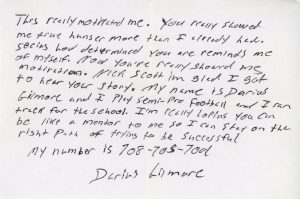 This really motivated me. You really showed
me true hunger more than I already had.
seeing how determined you are reminds me
of myself. Now you're really showed me
motivation. Nick Scott im glad I got
to hear your story. My name is Darius
Gilmore and I Play Semi-Pro Football and I run
track for the school. I'm really hoping you can
be like a mentor to me so I can stay on the
right Path of trying to be successful
My number is 708-705-
Darius Gilmore